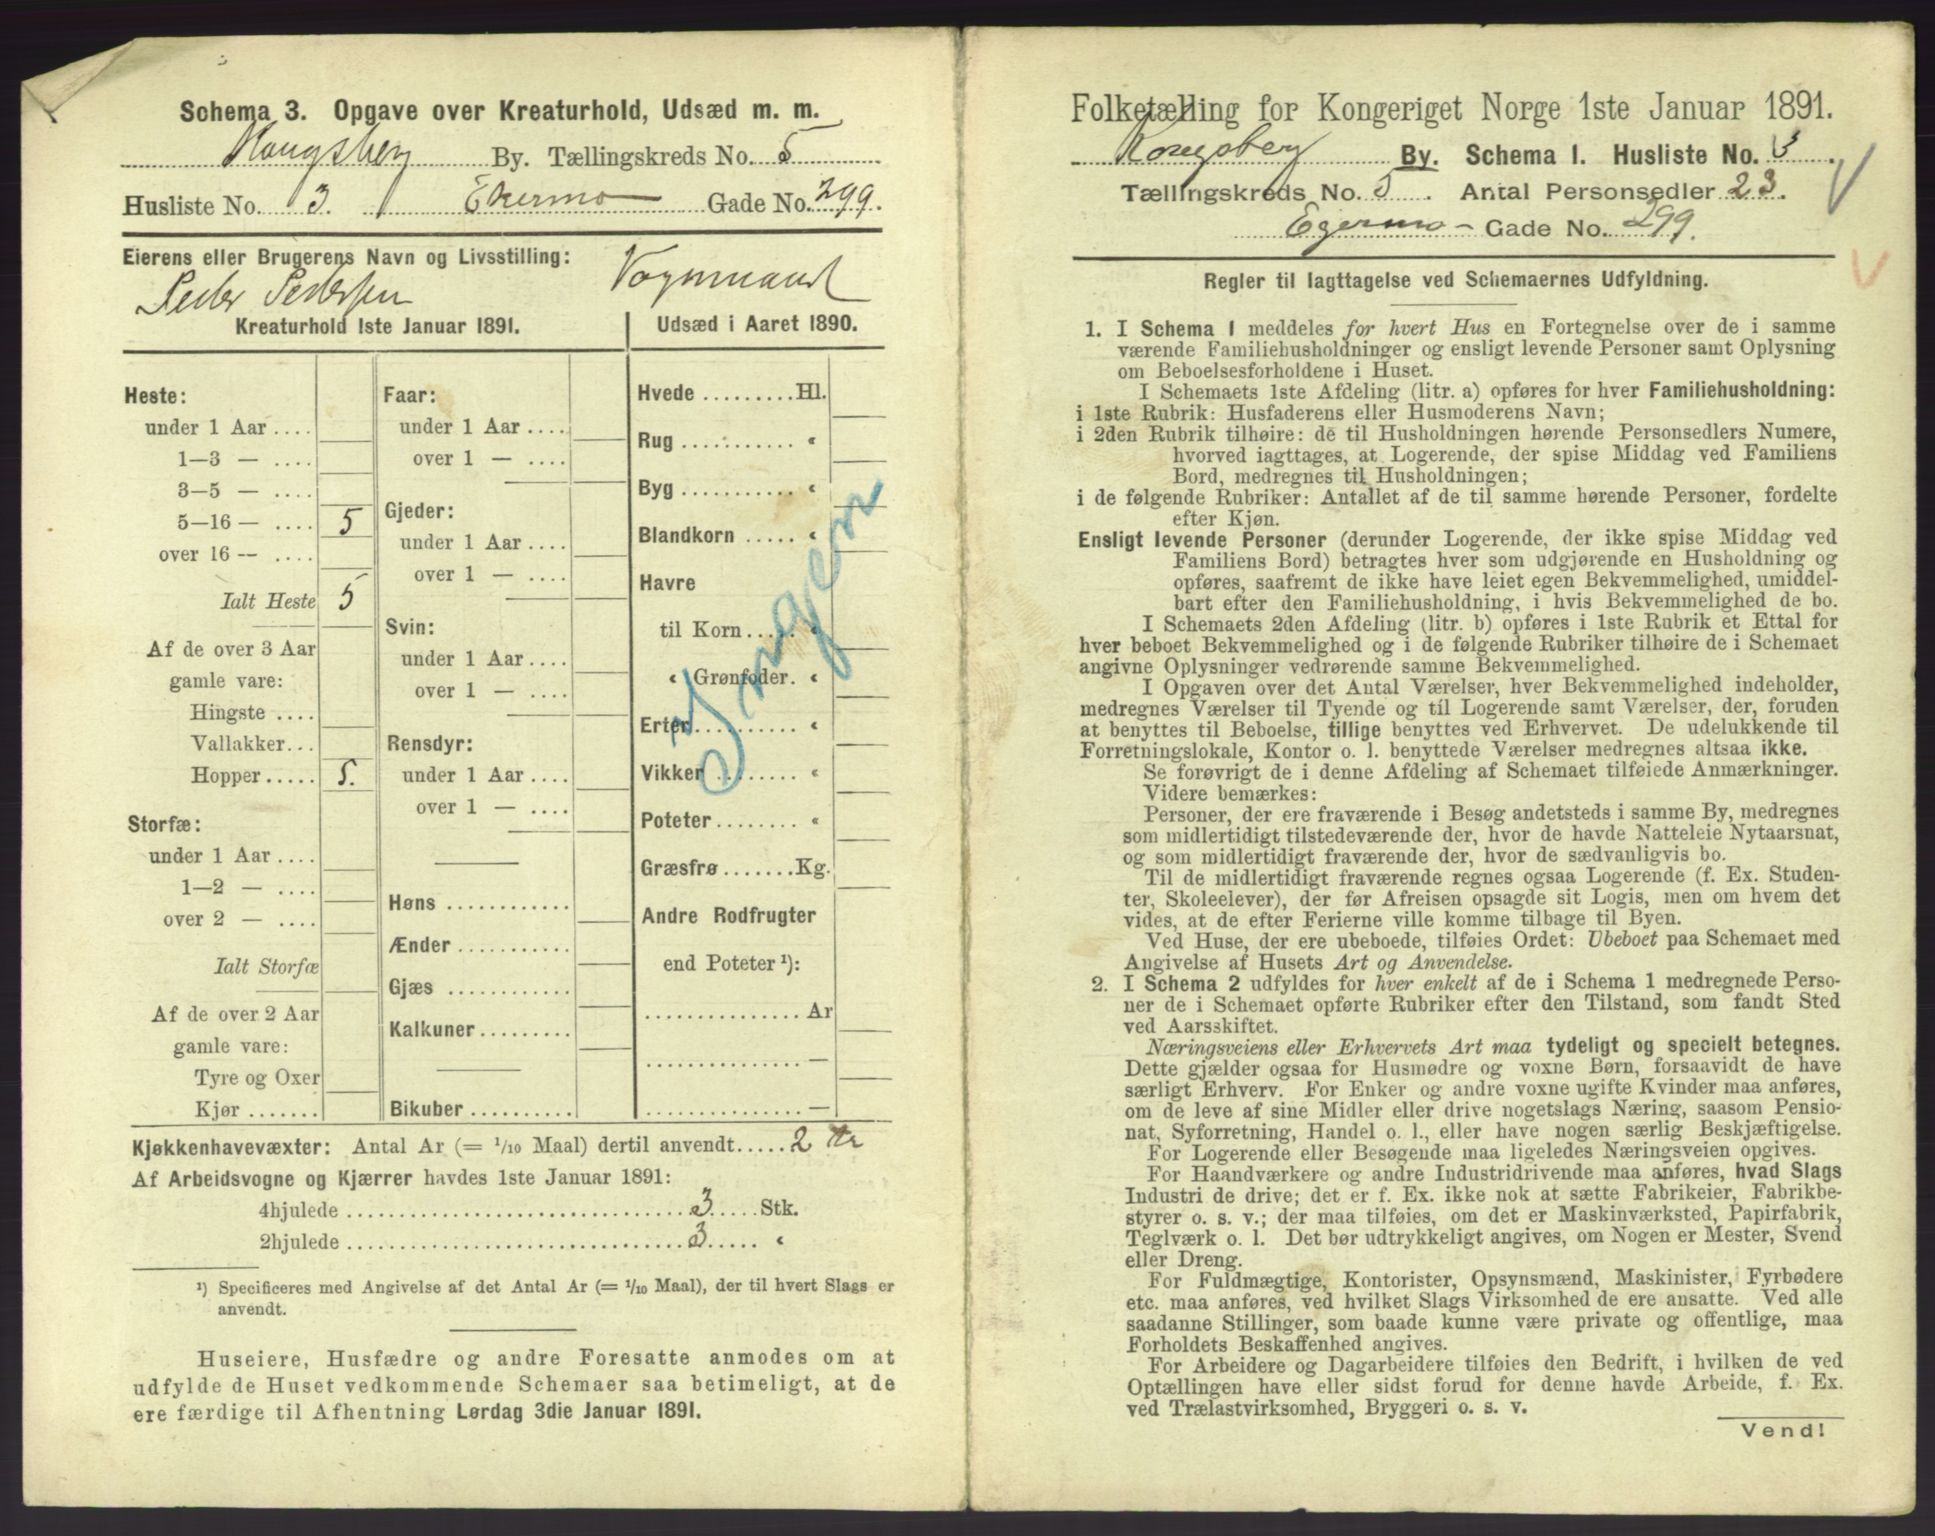 Schema 3. Opgave over Kreaturhold, Udsæd m. m.
Kongsberg By. Tællingskreds No. 5
Husliste No. 3. Ekermo Gade No. 299.
Eierens eller Brugerens Navn og Livsstilling:
Peder Pedersen Vognmand
Kreaturhold 1ste Januar 1891.
Heste:
under 1 Aar....
1—3 — ....
3—5 — ....
5—16 — .... 5
over 16 — ....
Ialt Heste 5
Af de over 3 Aar
gamle vare:
Hingste ....
Vallakker...
Hopper..... 5.
Storfæ:
under 1 Aar....
1—2 — ....
over 2 — ....
Ialt Storfæ
Af de over 2 Aar
gamle vare:
Tyre og Oxer
Kjør .......
Faar:
under 1 Aar ....
over 1 — ....
Gjeder:
under 1 Aar ....
over 1 — ....
Svin:
under 1 Aar....
over 1 — ....
Rensdyr:
under 1 Aar....
over 1 — ....
Høns ............
Ænder...........
Gjæs ............
Kalkuner.........
Bikuber..........
Udsæd i Aaret 1890.
Hvede .........Hl.
Rug .......... “
Byg........... “
Blandkorn ..... “
Havre
til Korn...... “
“ Grønfoder. “
Erter.......... “
Vikker ........ “
Poteter........ “
Græsfrø.......Kg.
Andre Rodfrugter
end Poteter ¹):
............... Ar
............... —
............... —
Ingen
Kjøkkenhavevæxter: Antal Ar (= 1/10 Maal) dertil anvendt..... 2 Ar
Af Arbeidsvogne og Kjærrer havdes 1ste Januar 1891:
4hjulede ........ 3 ..... Stk.
2hjulede ........ 3 ..... “
¹) Specificeres med Angivelse af det Antal Ar (= 1/10 Maal), der til hvert Slags er
anvendt.
Huseiere, Husfædre og andre Foresatte anmodes om at
udfylde de Huset vedkommende Schemaer saa betimeligt, at de
ere færdige til Afhentning Lørdag 3die Januar 1891.
Folketælling for Kongeriget Norge 1ste Januar 1891.
Kongsberg By. Schema I. Husliste No. 3.
Tællingskreds No. 5. Antal Personsedler 23.
Egermo - Gade No. 299.
Regler til Iagttagelse ved Schemaernes Udfyldning.
1. I Schema 1 meddeles for hvert Hus en Fortegnelse over de i samme
værende Familiehusholdninger og ensligt levende Personer samt Oplysning
om Beboelsesforholdene i Huset.
I Schemaets 1ste Afdeling (litr. a) opføres for hver Familiehusholdning:
i 1ste Rubrik: Husfaderens eller Husmoderens Navn;
i 2den Rubrik tilhøire: de til Husholdningen hørende Personsedlers Numere,
hvorved iagttages, at Logerende, der spise Middag ved Familiens
Bord, medregnes til Husholdningen;
i de følgende Rubriker: Antallet af de til samme hørende Personer, fordelte
efter Kjøn.
Ensligt levende Personer (derunder Logerende, der ikke spise Middag ved
Familiens Bord) betragtes hver som udgjørende en Husholdning og
opføres, saafremt de ikke have leiet egen Bekvemmelighed, umiddel-
bart efter den Familiehusholdning, i hvis Bekvemmelighed de bo.
I Schemaets 2den Afdeling (litr. b) opføres i 1ste Rubrik et Ettal for
hver beboet Bekvemmelighed og i de følgende Rubriker tilhøire de i Schemaet
angivne Oplysninger vedrørende samme Bekvemmelighed.
I Opgaven over det Antal Værelser, hver Bekvemmelighed indeholder,
medregnes Værelser til Tyende og til Logerende samt Værelser, der, foruden
at benyttes til Beboelse, tillige benyttes ved Erhvervet. De udelukkende til
Forretningslokale, Kontor o. l. benyttede Værelser medregnes altsaa ikke.
Se forøvrigt de i denne Afdeling af Schemaet tilføiede Anmærkninger.
Videre bemærkes:
Personer, der ere fraværende i Besøg andetsteds i samme By, medregnes
som midlertidigt tilstedeværende der, hvor de havde Natteleie Nytaarsnat,
og som midlertidigt fraværende der, hvor de sædvanligvis bo.
Til de midlertidigt fraværende regnes ogsaa Logerende (f. Ex. Studen-
ter, Skoleelever), der før Afreisen opsagde sit Logis, men om hvem det
vides, at de efter Ferierne ville komme tilbage til Byen.
Ved Huse, der ere ubeboede, tilføies Ordet: Ubeboet paa Schemaet med
Angivelse af Husets Art og Anvendelse.
2. I Schema 2 udfyldes for hver enkelt af de i Schema 1 medregnede Perso-
ner de i Schemaet opførte Rubriker efter den Tilstand, som fandt Sted
ved Aarsskiftet.
Næringsveiens eller Erhvervets Art maa tydeligt og specielt betegnes.
Dette gjælder ogsaa for Husmødre og voxne Børn, forsaavidt de have
særligt Erhverv. For Enker og andre voxne ugifte Kvinder maa anføres,
om de leve af sine Midler eller drive nogetslags Næring, saasom Pensio-
nat, Syforretning, Handel o. l., eller have nogen særlig Beskjæftigelse.
For Logerende eller Besøgende maa ligeledes Næringsveien opgives.
For Haandværkere og andre Industridrivende maa anføres, hvad Slags
Industri de drive; det er f. Ex. ikke nok at sætte Fabrikeier, Fabrikbe-
styrer o. s. v.; der maa tilføies, om det er Maskinværksted, Papirfabrik,
Teglværk o. l. Det bør udtrykkeligt angives, om Nogen er Mester, Svend
eller Dreng.
For Fuldmægtige, Kontorister, Opsynsmænd, Maskinister, Fyrbødere
etc. maa anføres, ved hvilket Slags Virksomhed de ere ansatte. Ved alle
saadanne Stillinger, som baade kunne være private og offentlige, maa
Forholdets Beskaffenhed angives.
For Arbeidere og Dagarbeidere tilføies den Bedrift, i hvilken de ved
Optællingen have eller sidst forud for denne havde Arbeide, f. Ex.
ved Trælastvirksomhed, Bryggeri o. s. v.
Vend!